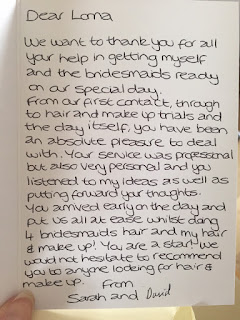 Dear Lorna
We want to thank you for all
your help in getting myself
and the bridesmaids ready
on our special day.
From our first contact, through
to hair and make up trials and
the day itself, you have been
an absolute pleasure to deal
with. Your service was professional
but also very personal and you
listened to my ideas as well as
putting forward your thoughts.
You arrived early on the day and
put us all at ease whilst doing
4 bridesmaids hair and my hair
& make up! You are a star! We
would not hesitate to recommend
you to anyone looking for hair &
make up. From
Sarah and David